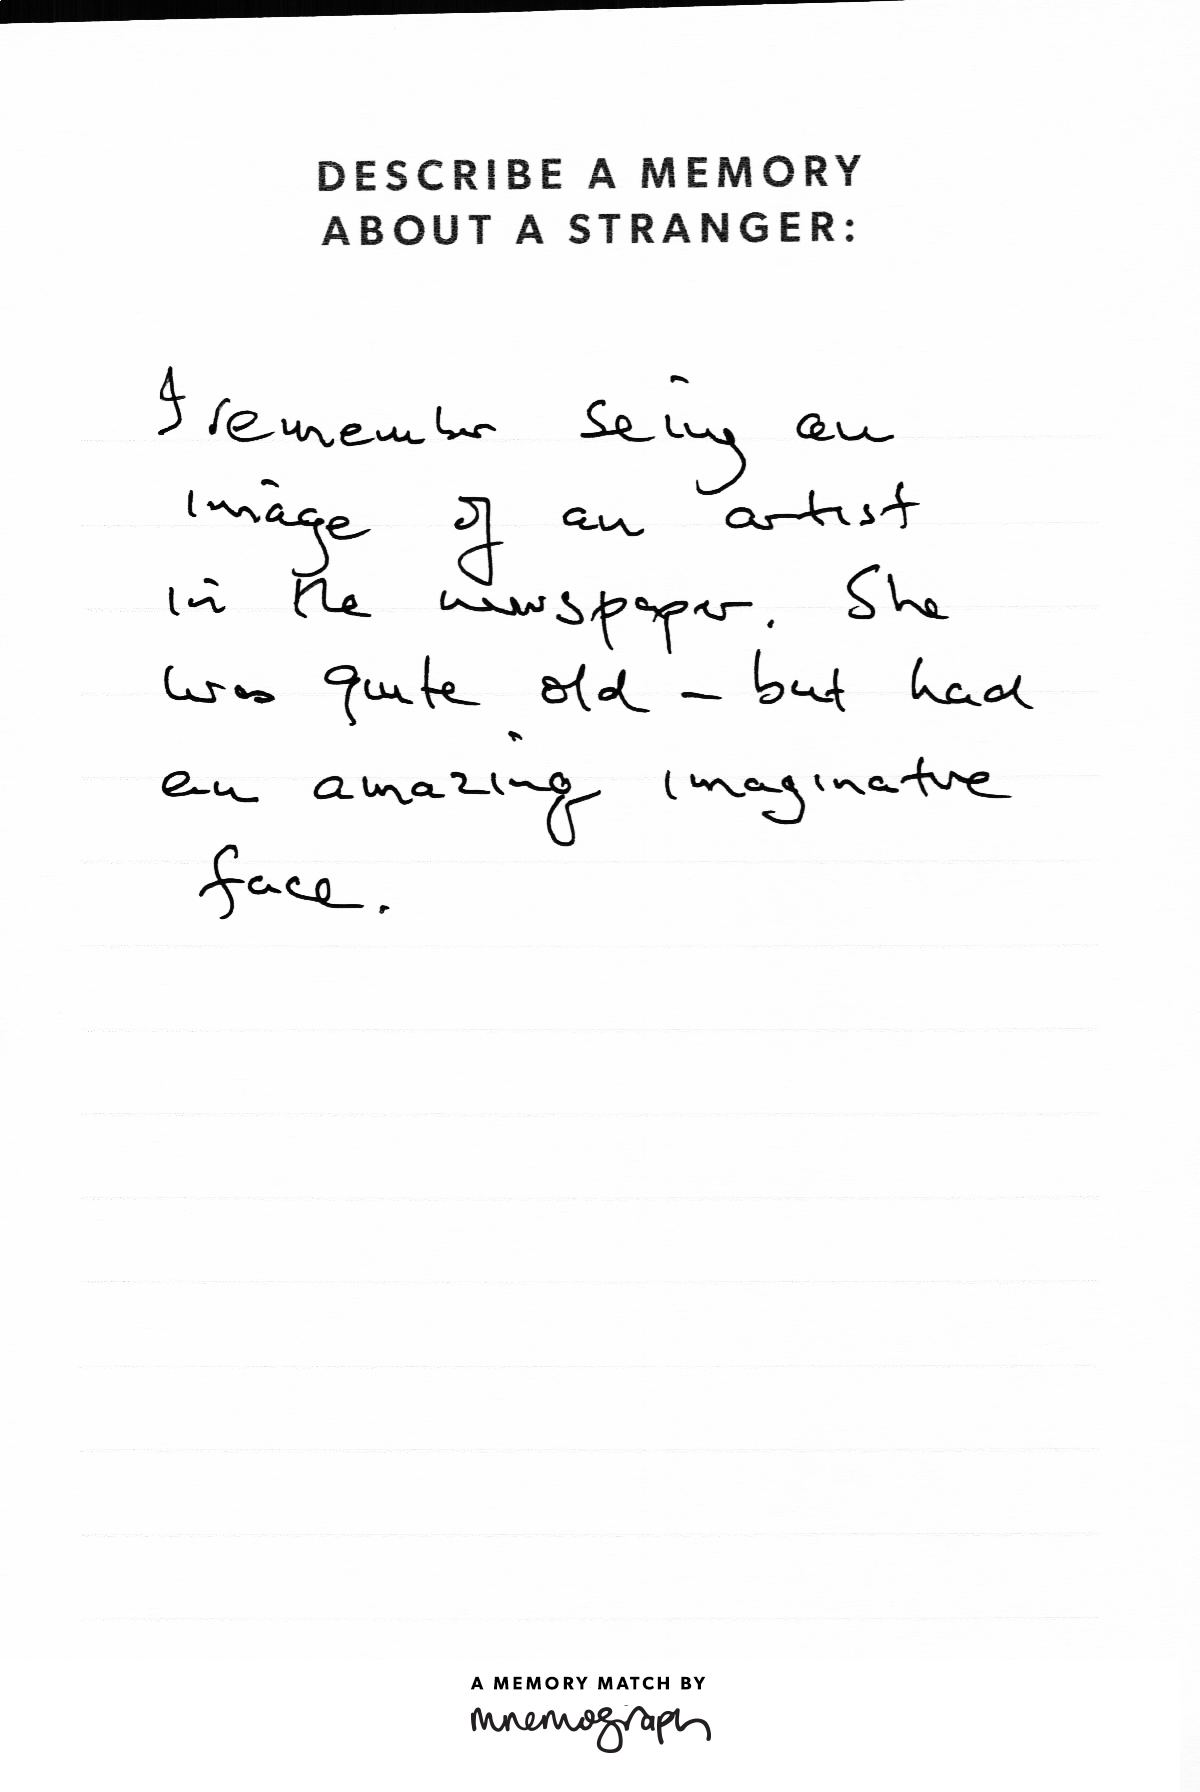 DESCRIBE A MEMORY
ABOUT A STRANGER:
I remember seing an
image of an artist
in the newspaper. She
was quite old – but had
an amazing imaginative
face.
A MEMORY MATCH BY
mnemograph